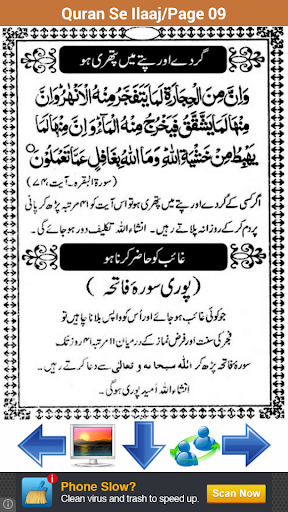 Quran Se Ilaaj/Page 09
گردے اور پتے میں پتھری ہو
وَاِنَّ مِنَ الْحِجَارَةِ لَمَا يَتَفَجَّرُ مِنْهُ الْاَنْهٰرُ وَاِنَّ
مِنْهَا لَمَا يَشَّقَّقُ فَيَخْرُجُ مِنْهُ الْمَآءُ وَاِنَّ مِنْهَا لَمَا
يَهْبِطُ مِنْ خَشْيَةِ اللّٰهِ وَمَا اللّٰهُ بِغَافِلٍ عَمَّا تَعْمَلُوْنَ
(سورۃ البقرہ۔آیت۷۴)
اگر کسی کے گردے اور پتے میں پتھری ہو تو اس آیت کو ۴۱ مرتبہ پڑھ کر پانی
پر دم کر کے روزانہ پلاتے رہیں۔ انشاء اللہ تکلیف دور ہو جائے گی۔
غائب کو حاضر کرنا ہو
(پوری سورۃ فاتحہ)
جو کوئی غائب ہو جائے اور اُس کو واپس بلانا چاہیں تو
فجر کی سنت اور فرض نماز کے درمیان ۴۱ مرتبہ ۴۱ روز تک
سورۃ فاتحہ پڑھ کر اللہ سبحانہ و تعالیٰ سے دعا کرتے رہیں۔
انشاء اللہ اُمید پوری ہوگی۔
Phone Slow?
Clean virus and trash to speed up.
Scan Now